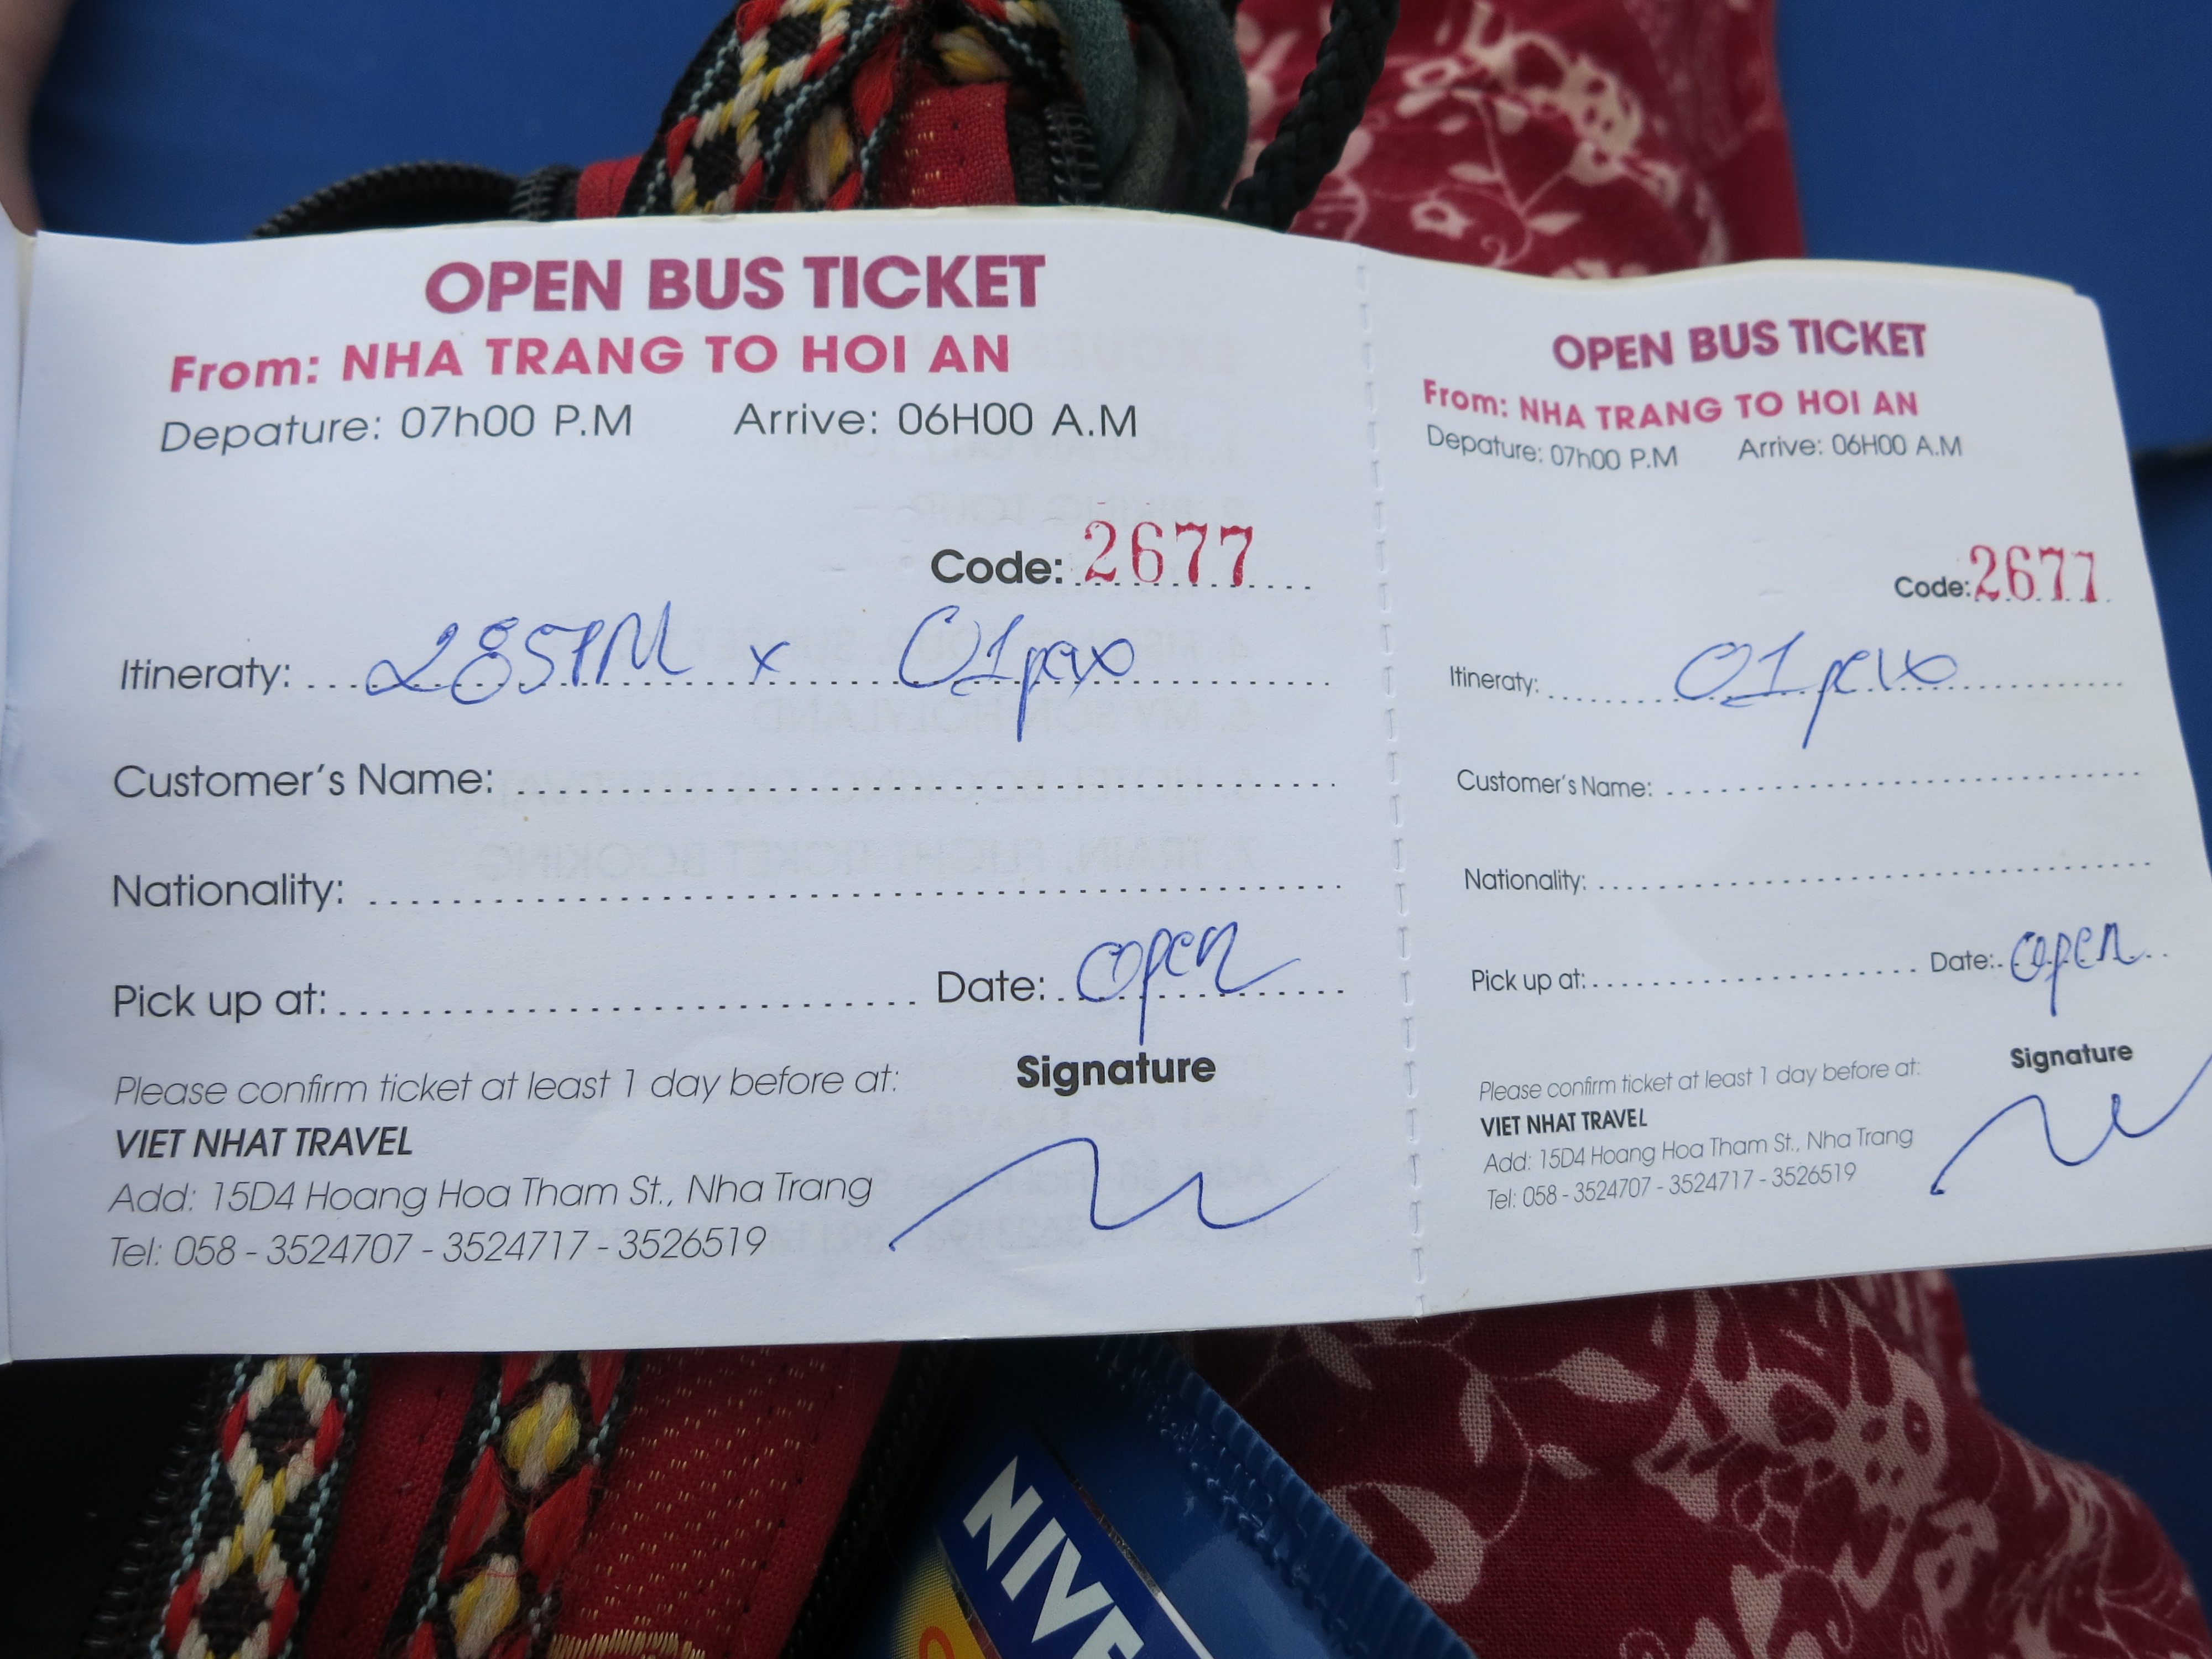 OPEN BUS TICKET
From: NHA TRANG TO HOI AN
Depature: 07h00 P.M Arrive: 06H00 A.M
Code: 2677
Itineraty: x 01pax
Customer's Name:
Nationality:
Pick up at: Date: open
Please confirm ticket at least 1 day before at: Signature
VIET NHAT TRAVEL
Add: 15D4 Hoang Hoa Tham St., Nha Trang
Tel: 058 - 3524707 - 3524717 - 3526519
OPEN BUS TICKET
From: NHA TRANG TO HOI AN
Depature: 07h00 P.M Arrive: 06H00 A.M
Code: 2677
Itineraty: 01pax
Customer's Name:
Nationality:
Pick up at: Date: open
Please confirm ticket at least 1 day before at: Signature
VIET NHAT TRAVEL
Add: 15D4 Hoang Hoa Tham St., Nha Trang
Tel: 058 - 3524707 - 3524717 - 3526519
NIVE